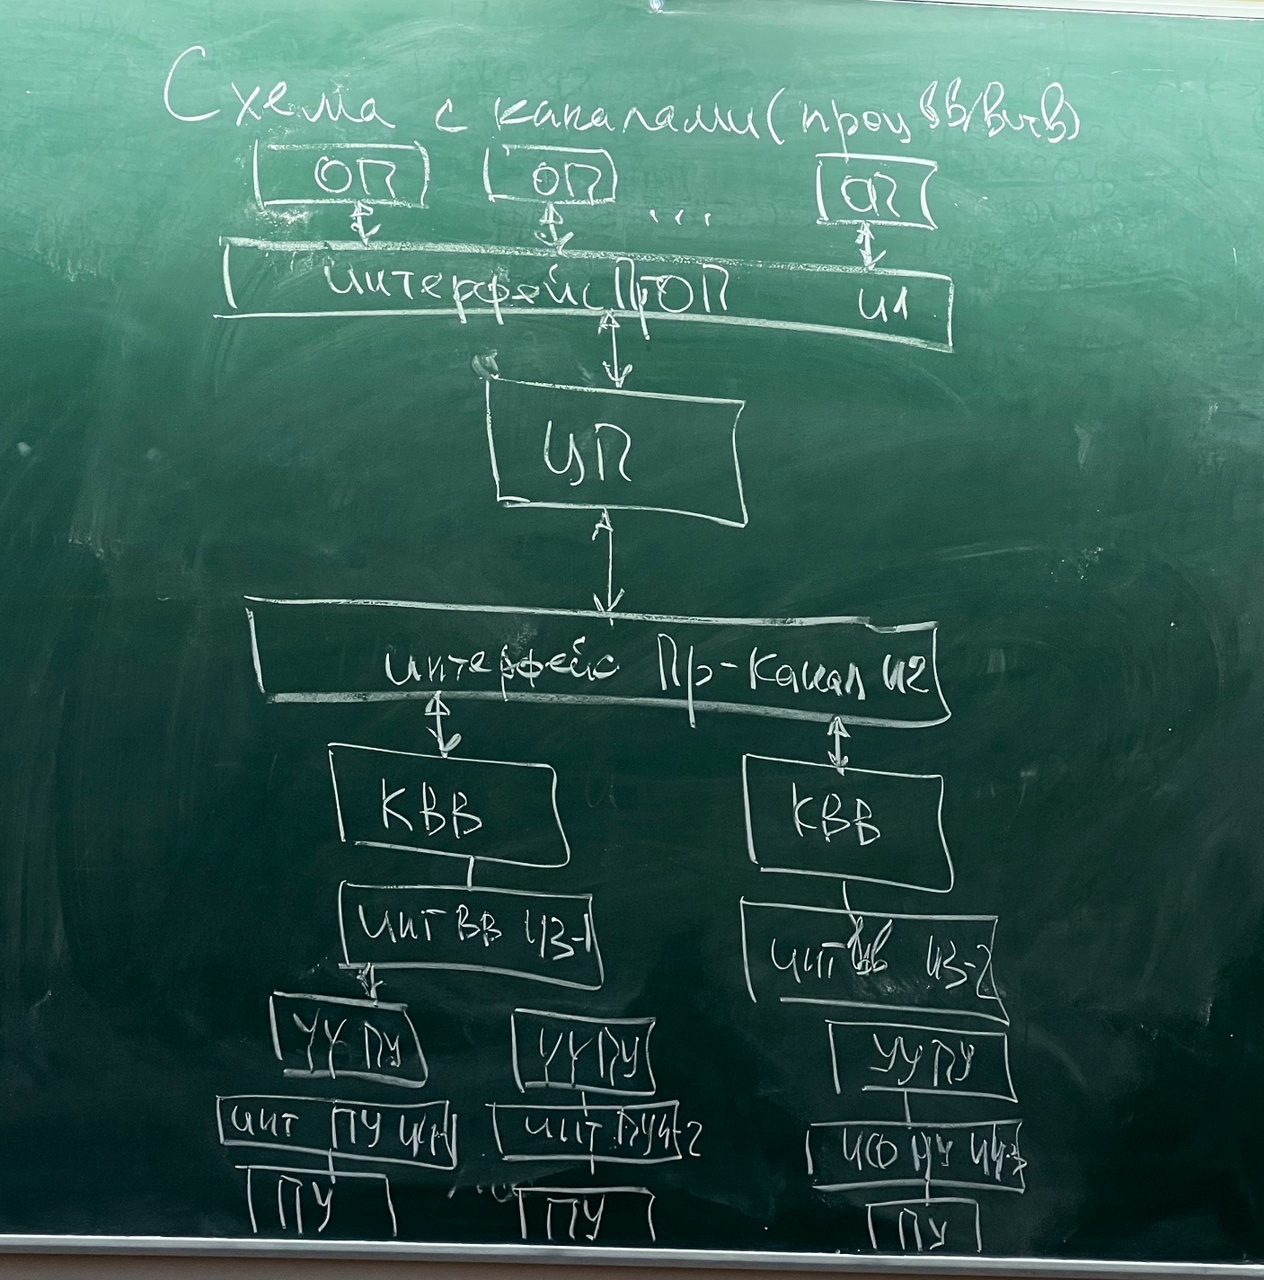 Схема с каналами (проц ВВ/Выв)
ОП ОП ... ОП
интерфейс Пр ОП И1
ЦП
интерфейс Пр-Канал И2
КВВ КВВ
инт ВВ И3-1 инт ВВ И3-2
УУ ПУ УУ ПУ УУ ПУ
инт ПУ И4-1 инт ПУ И4-2 ПУ И4-3
ПУ ПУ ПУ